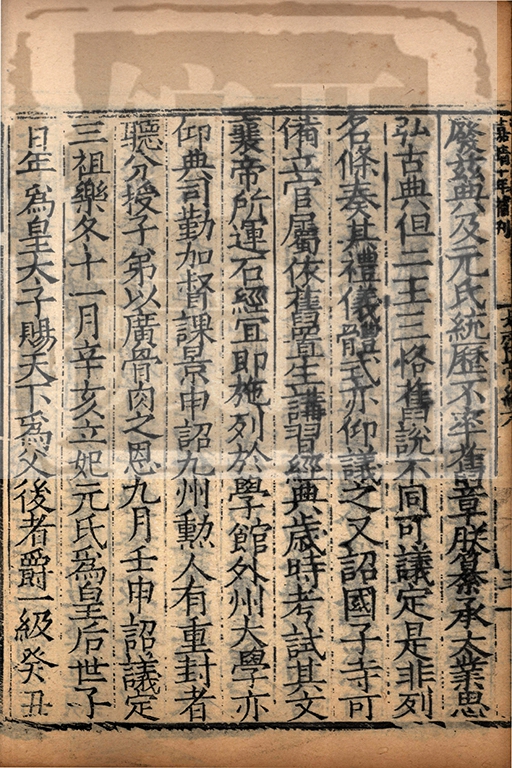 嘉靖十年補刊
廢茲典及元氏統歷不率舊章朕纂承大業思
弘古典但二王三恪舊說不同可議定是非列
名條奏其禮儀體式亦仰議之又詔國子寺可
備立官屬依舊置生講習經典歲時考試其文
襄帝所運石經宜即施列於學館外州大學亦
仰典司勤加督課景申詔九州勳人有重封者
聽分授子弟以廣骨肉之恩九月壬申詔議定
三祖樂冬十一月辛亥立妃元氏為皇后世子
百年為皇太子賜天下為父後者爵一級癸丑